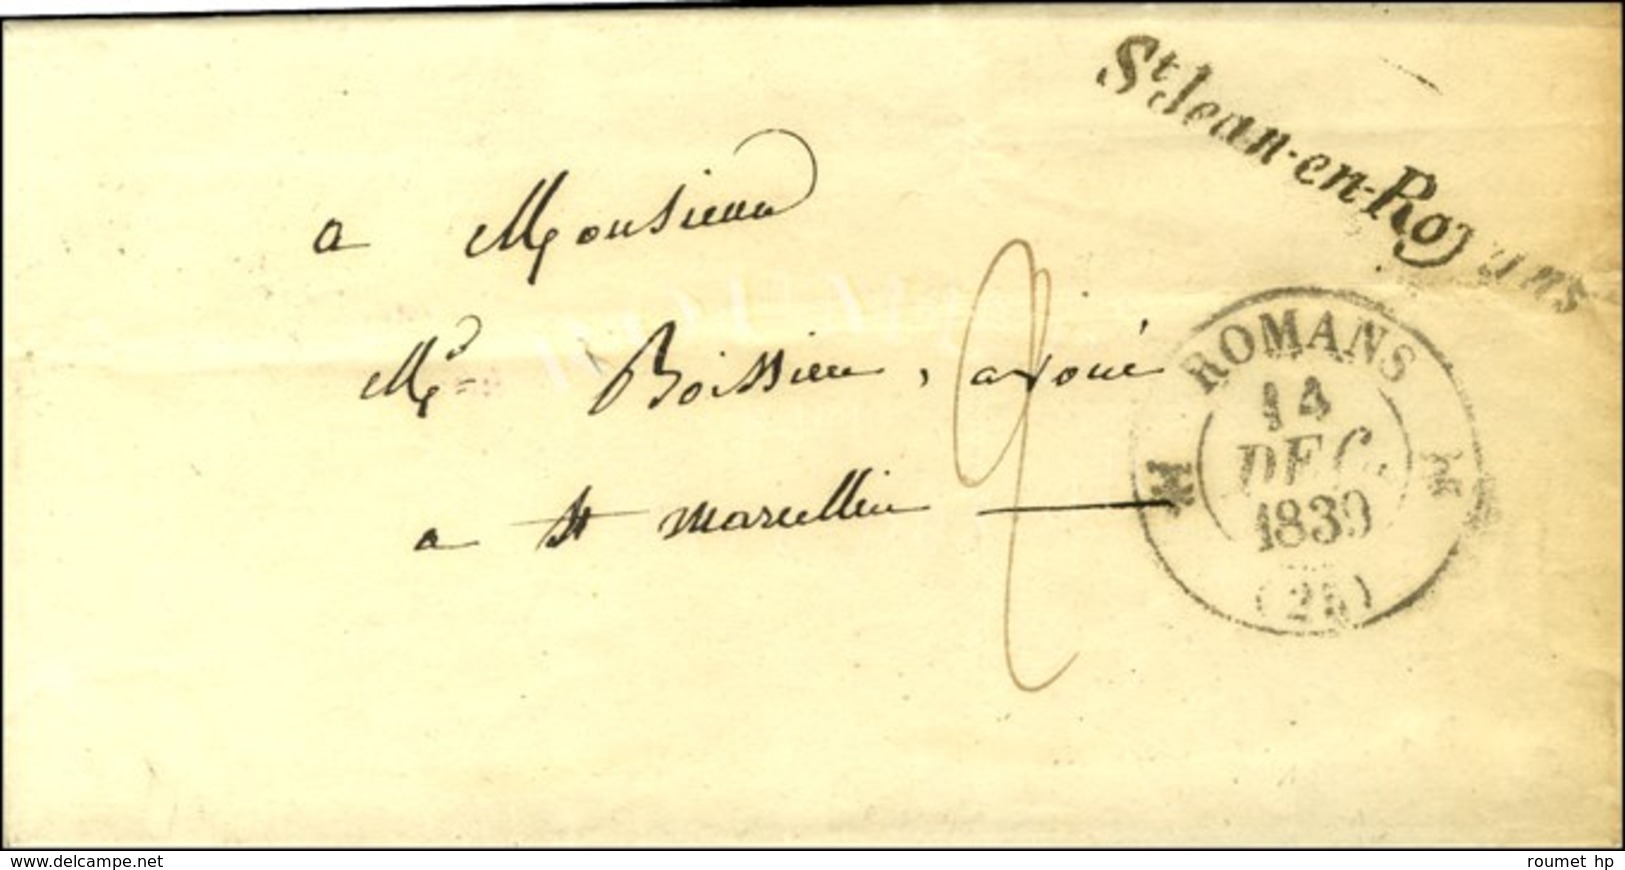 St Jean-en-Royans
a Monsieur
Mr Boissieu, avoué
a St marcellin
2
ROMANS
14
DEC.
1839
(25)
www.delcampe.net
roumet hp